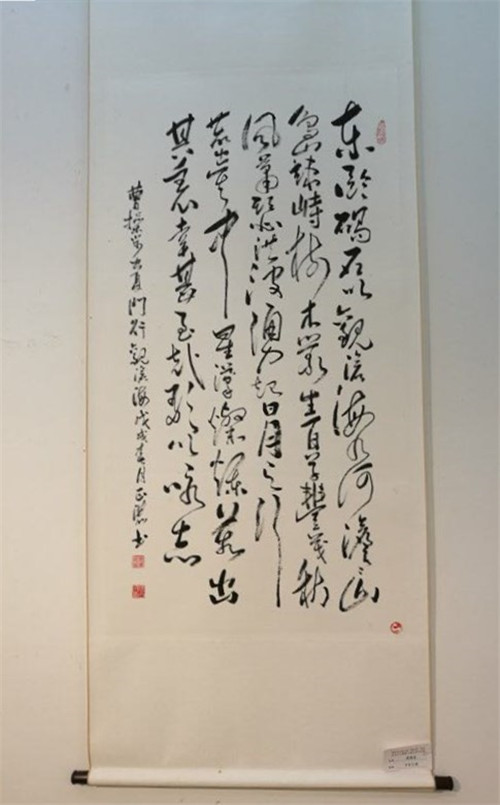 东临碣石以觀滄海水何澹澹山
島竦峙樹木叢生百草豐茂秋
风蕭瑟洪波涌起日月之行
若出其中星漢燦爛若出
其裏幸甚至哉歌以咏志
曹操步出夏門行觀滄海戊戌春月正书